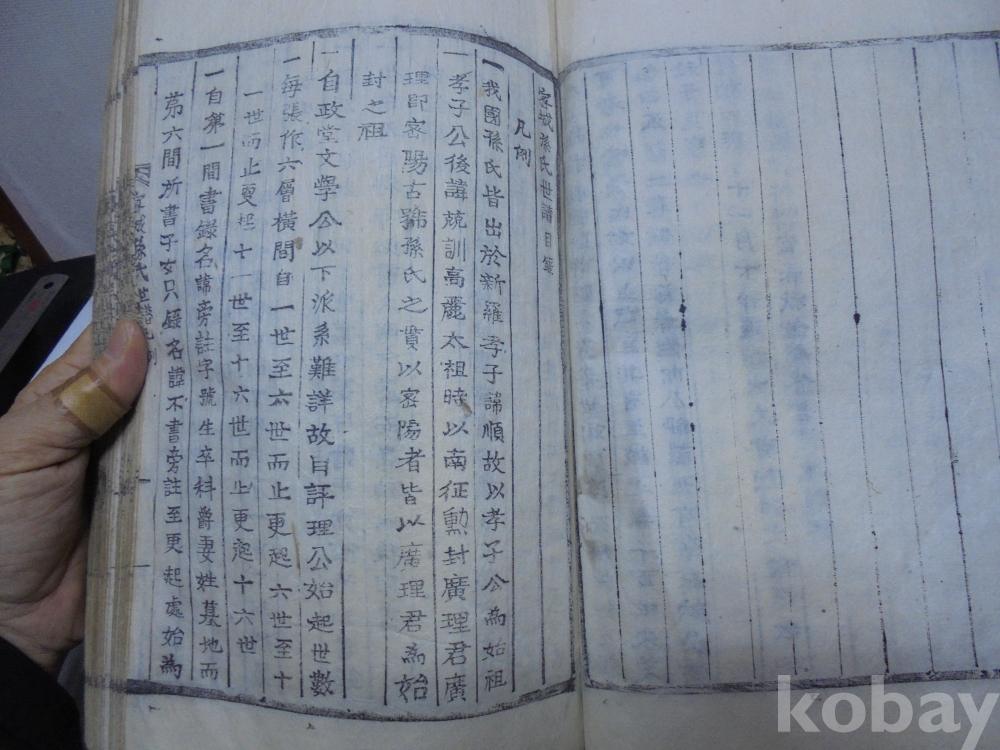 密城孫氏世譜目錄
凡例
一我國孫氏皆出於新羅孝子諱順故以孝子公為始祖
一孝子公後諱兢訓高麗太祖時以南征勳封廣理君廣
理即密陽古號孫氏之貫以密陽者皆以廣理君為始
封之祖
一自政堂文學公以下派系難詳故自評理公始起世數
一每張作六層橫間自一世至六世而止更起六世至十
一世而止更起十一世至十六世而止更起十六世
一自第一間書錄名諱旁註字號生卒科爵妻姓墓地而
第六間所書子女只錄名諱不書旁註至更起處始為
密城孫氏世譜凡例
kobay